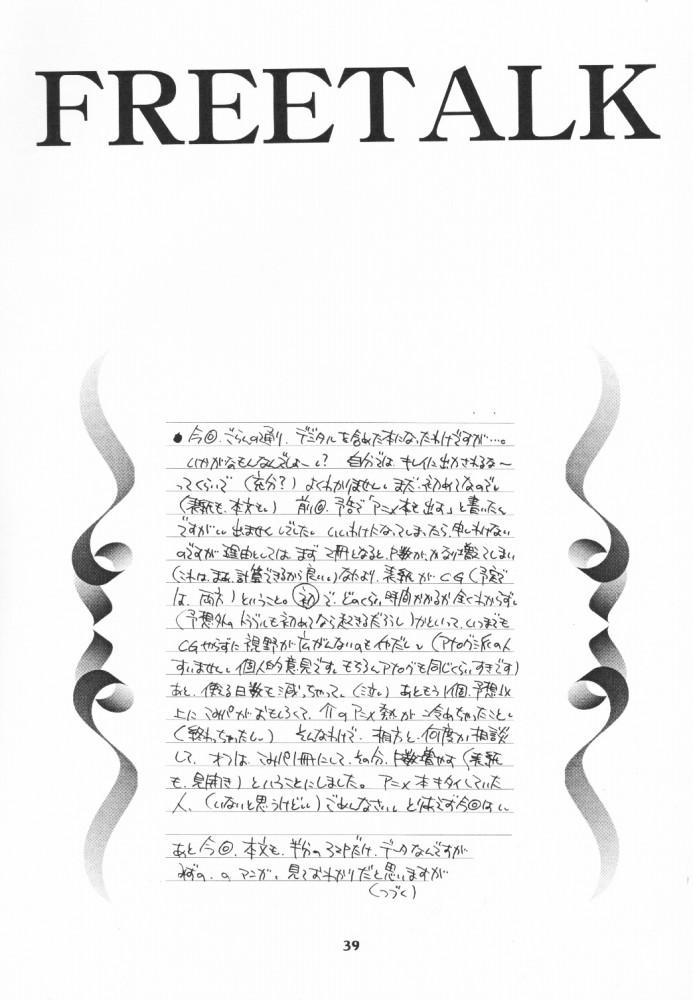 FREETALK
●今回、ごらんの通り、デジタルを含めた本になったわけですが…。
いかがなもんなんでしょーい? 自分では、キレイに出かされるな〜
ってくらいで (充分?) よくわかりません。まだ、初めてなので。
(表紙も、本文も。) 前回、予告で「アニメ本を出す」と書いたん
ですがい、出ませんでした。いいわけになってしまったら、申しわけない
のですが 理由としては、まず 2冊となると、ト数が、かなり増えてしまい
(これは、まあ、計算できるから良い。) なにより、表紙がCG (予定で
は、両方) ということ。初で、どのくらい時間かかるか全くわからず。
(予想外のトラブルも初めてなら起きるだろうし) かといって、いつまでも
CGやらずに視野が広がんないのもイヤだし。(アナログ派の人
すいません。個人的意見です。もちろんアナログも同じくらいすきです)
あと、使える日数も減っちゃって。(泣い) あともう1個、予想以
上に こみパがおもしろくて、介のアニメ熱が 冷めちゃったこと。
(終わっちゃたしい) そんなわけで、相方と、何度か相談
して、オフは、こみパ1冊にして、その分、ト数増やす (表紙
も、見開き) ということにしました。アニメ本キタイしていた
人、(いないと思うけどい) ごめんなさい。とりあえず今回はい
あと今回、本文も、半分のコマだけ、データなんですが
の マンガ、見ておわかりだと思いますが
(つづく)
39